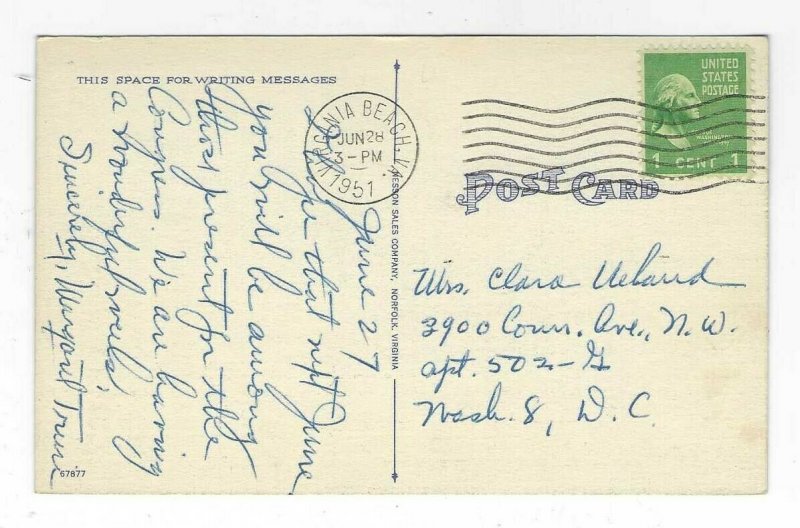 THIS SPACE FOR WRITING MESSAGES
June 27
I hope that next June
you will be among
those present for the
Congress. We are having
a wonderful week!
Sincerely,
Margaret
VIRGINIA BEACH, VA.
JUN 28
3-PM
1951
UNITED
STATES
POSTAGE
1 CENT 1
POST CARD
Mrs. Clara Ueland
3900 Conn. Ave., N.W.
apt. 502-G
Wash. 8, D.C.
SALES COMPANY, NORFOLK, VIRGINIA
67877